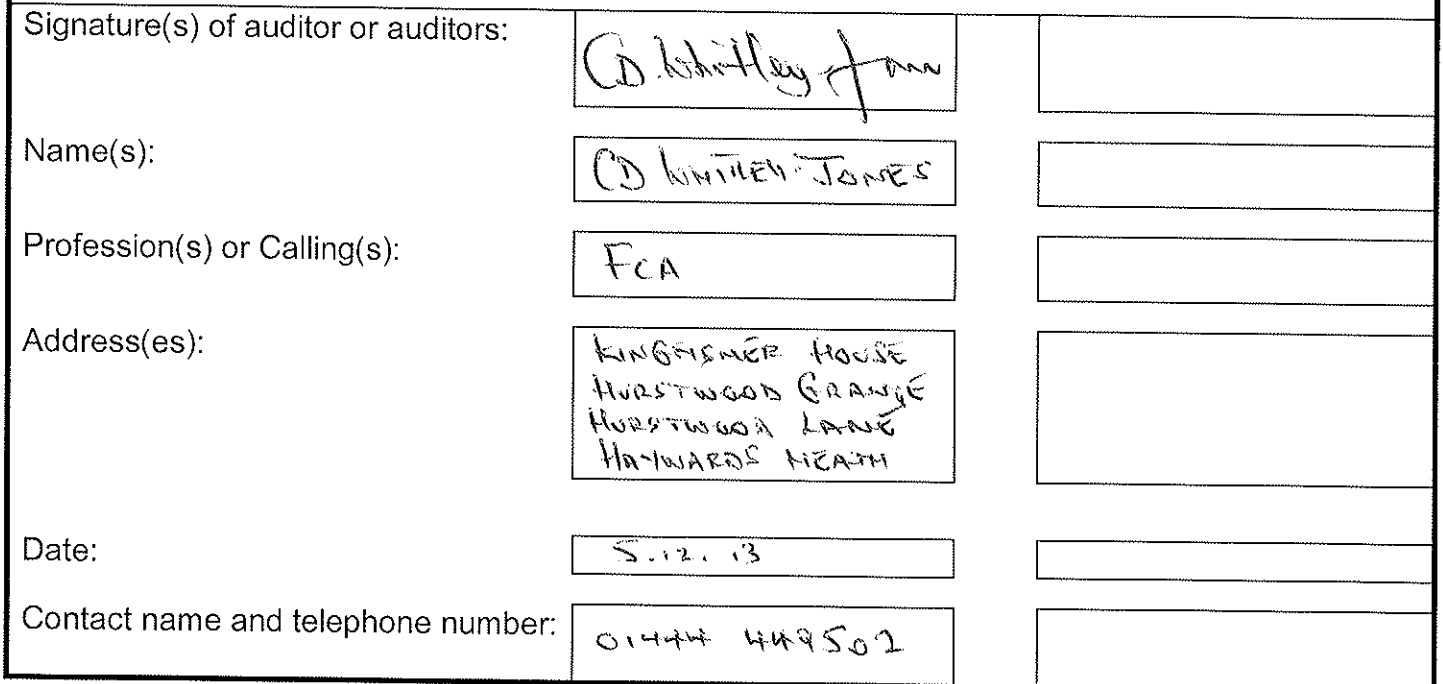 Signature(s) of auditor or auditors:
CD Whitley-Jones
Name(s):
CD WHITLEY-JONES
Profession(s) or Calling(s):
FCA
Address(es):
KINGFISHER HOUSE
HURSTWOOD GRANGE
HURSTWOOD LANE
HAYWARDS HEATH
Date:
5.12.13
Contact name and telephone number:
01444 449502